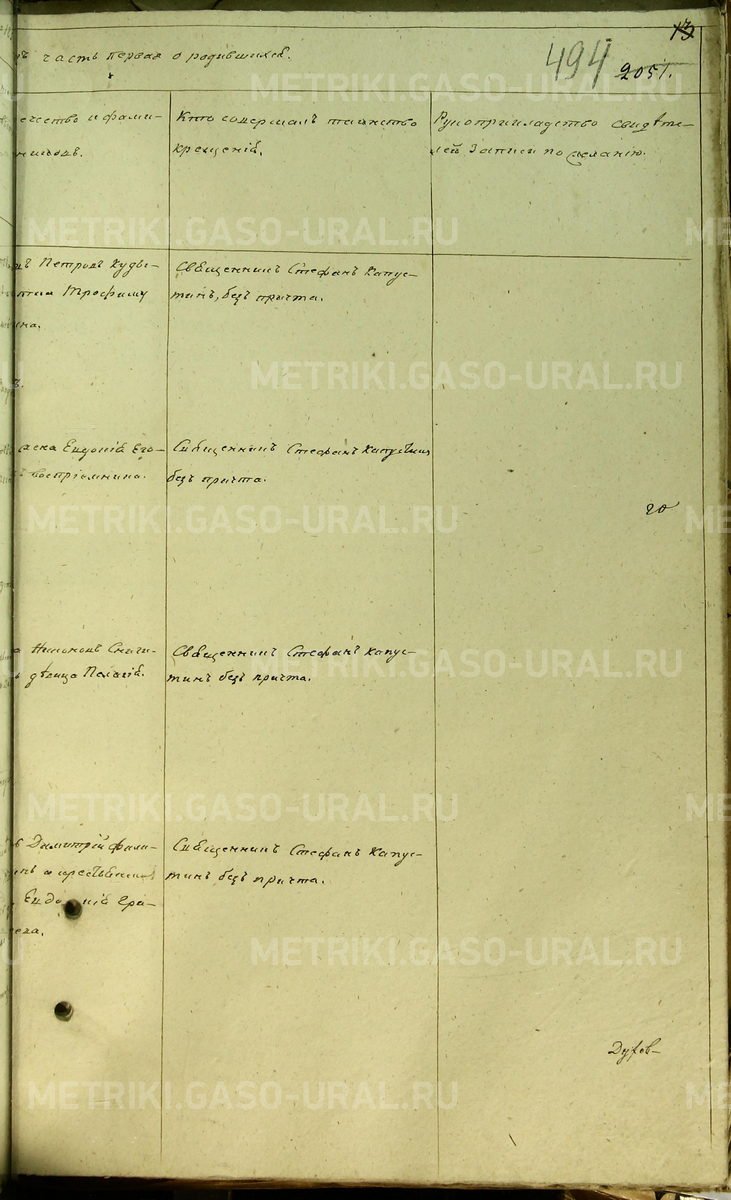 13
494
2051.
часть первая о родившихся.
Кто совершалъ таинство
крещенія.
Рукоприкладство свидѣте-
лей записи по желанію.
Петровъ Куды-
Трофиму
Священникъ Стефанъ Капус-
тинъ, безъ причта.
Евдокія Его-
воспріемника.
Священникъ Стефанъ Капустинъ
безъ причта.
20
Никоновъ Сниги-
дѣвица Пелагія.
Священникъ Стефанъ Капус-
тинъ безъ причта.
Димитрій Фили-
Священникъ Стефанъ Капус-
тинъ безъ причта.
Духов-
METRIKI.GASO-URAL.RU